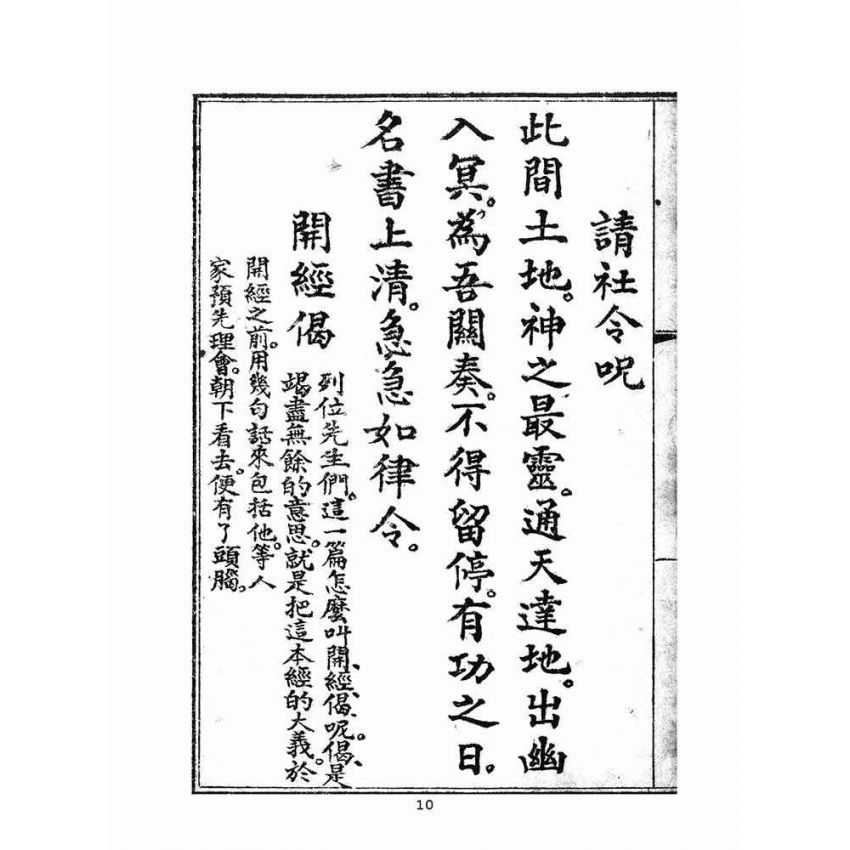 請社令呪
此間土地。神之最靈。通天達地。出幽
入冥。為吾關奏。不得留停。有功之日。
名書上清。急急如律令。
開經偈
列位先生們。這一篇怎麼叫開、經、偈、呢。偈、是
竭盡無餘的意思。就是把這本經的大義。於
開經之前。用幾句話來包括他。等人
家預先理會。朝下看去。便有了頭腦。
10